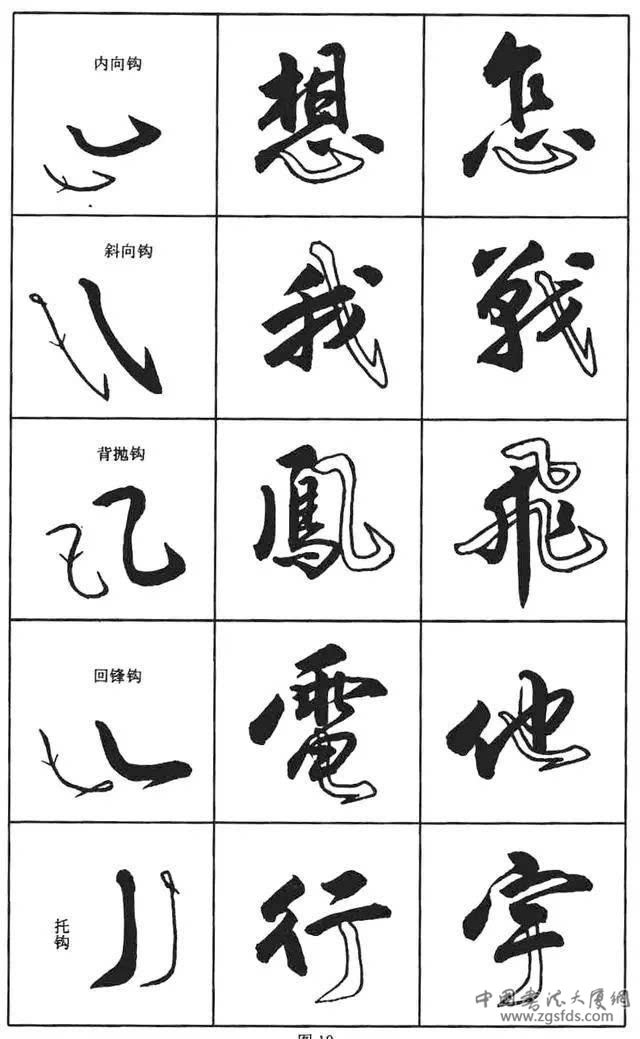 内向钩
想
怎
斜向钩
我
戰
背抛钩
鳳
飛
回锋钩
電
他
托钩
行
宇
中国书法大厦網
www.zgsfds.com
图 19